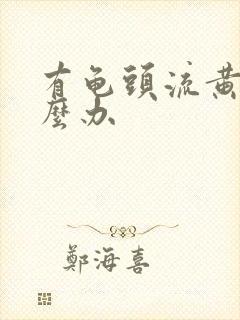 有龟頭流黄
麼办
鄭海喜